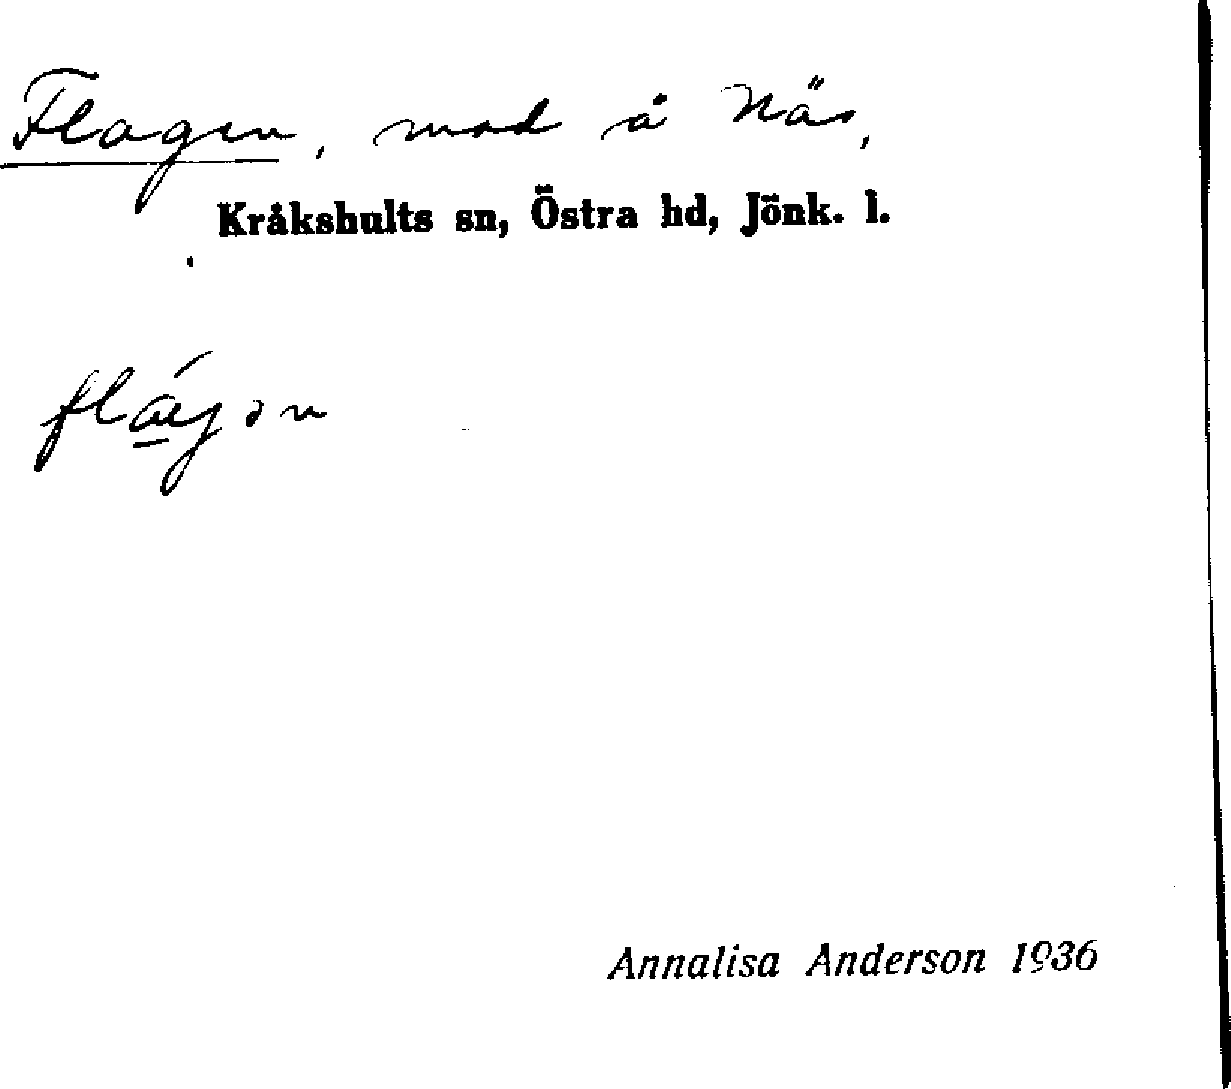 Flagen, mad å Näs,
Kråkshults sn, Östra hd, Jönk. l.
Annalisa Anderson 1936